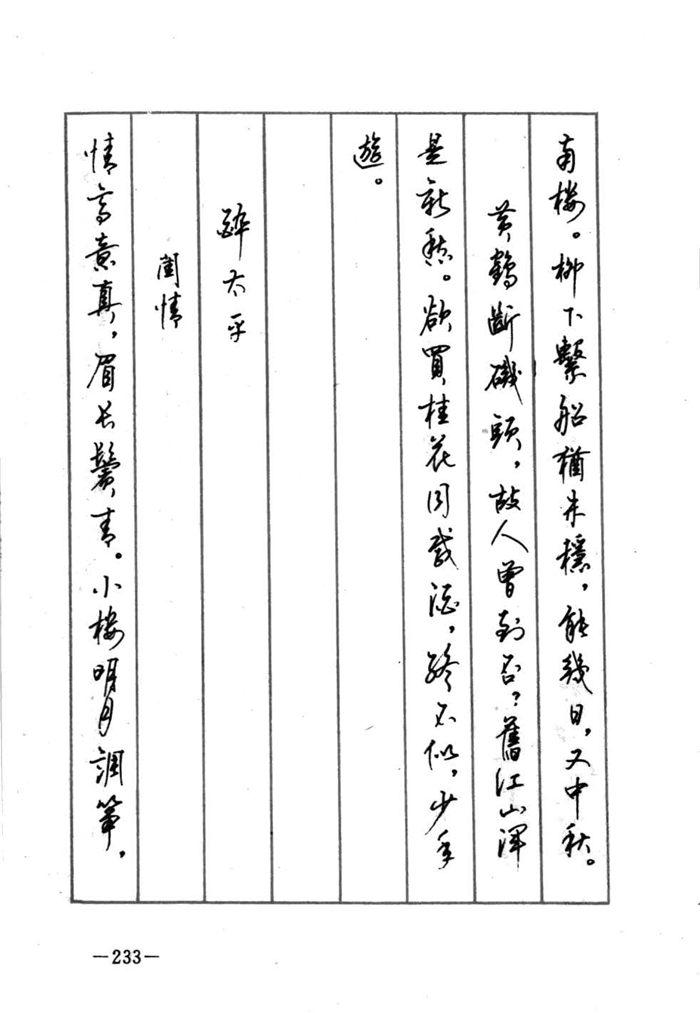 南楼。柳下繫船猶未穩，能幾日，又中秋。
黄鶴斷磯頭，故人曾到否？舊江山渾
是新愁。欲買桂花同載酒，終不似，少年
遊。
醉太平
閨情
情高意真，眉长鬢青。小楼明月調箏，
—233—